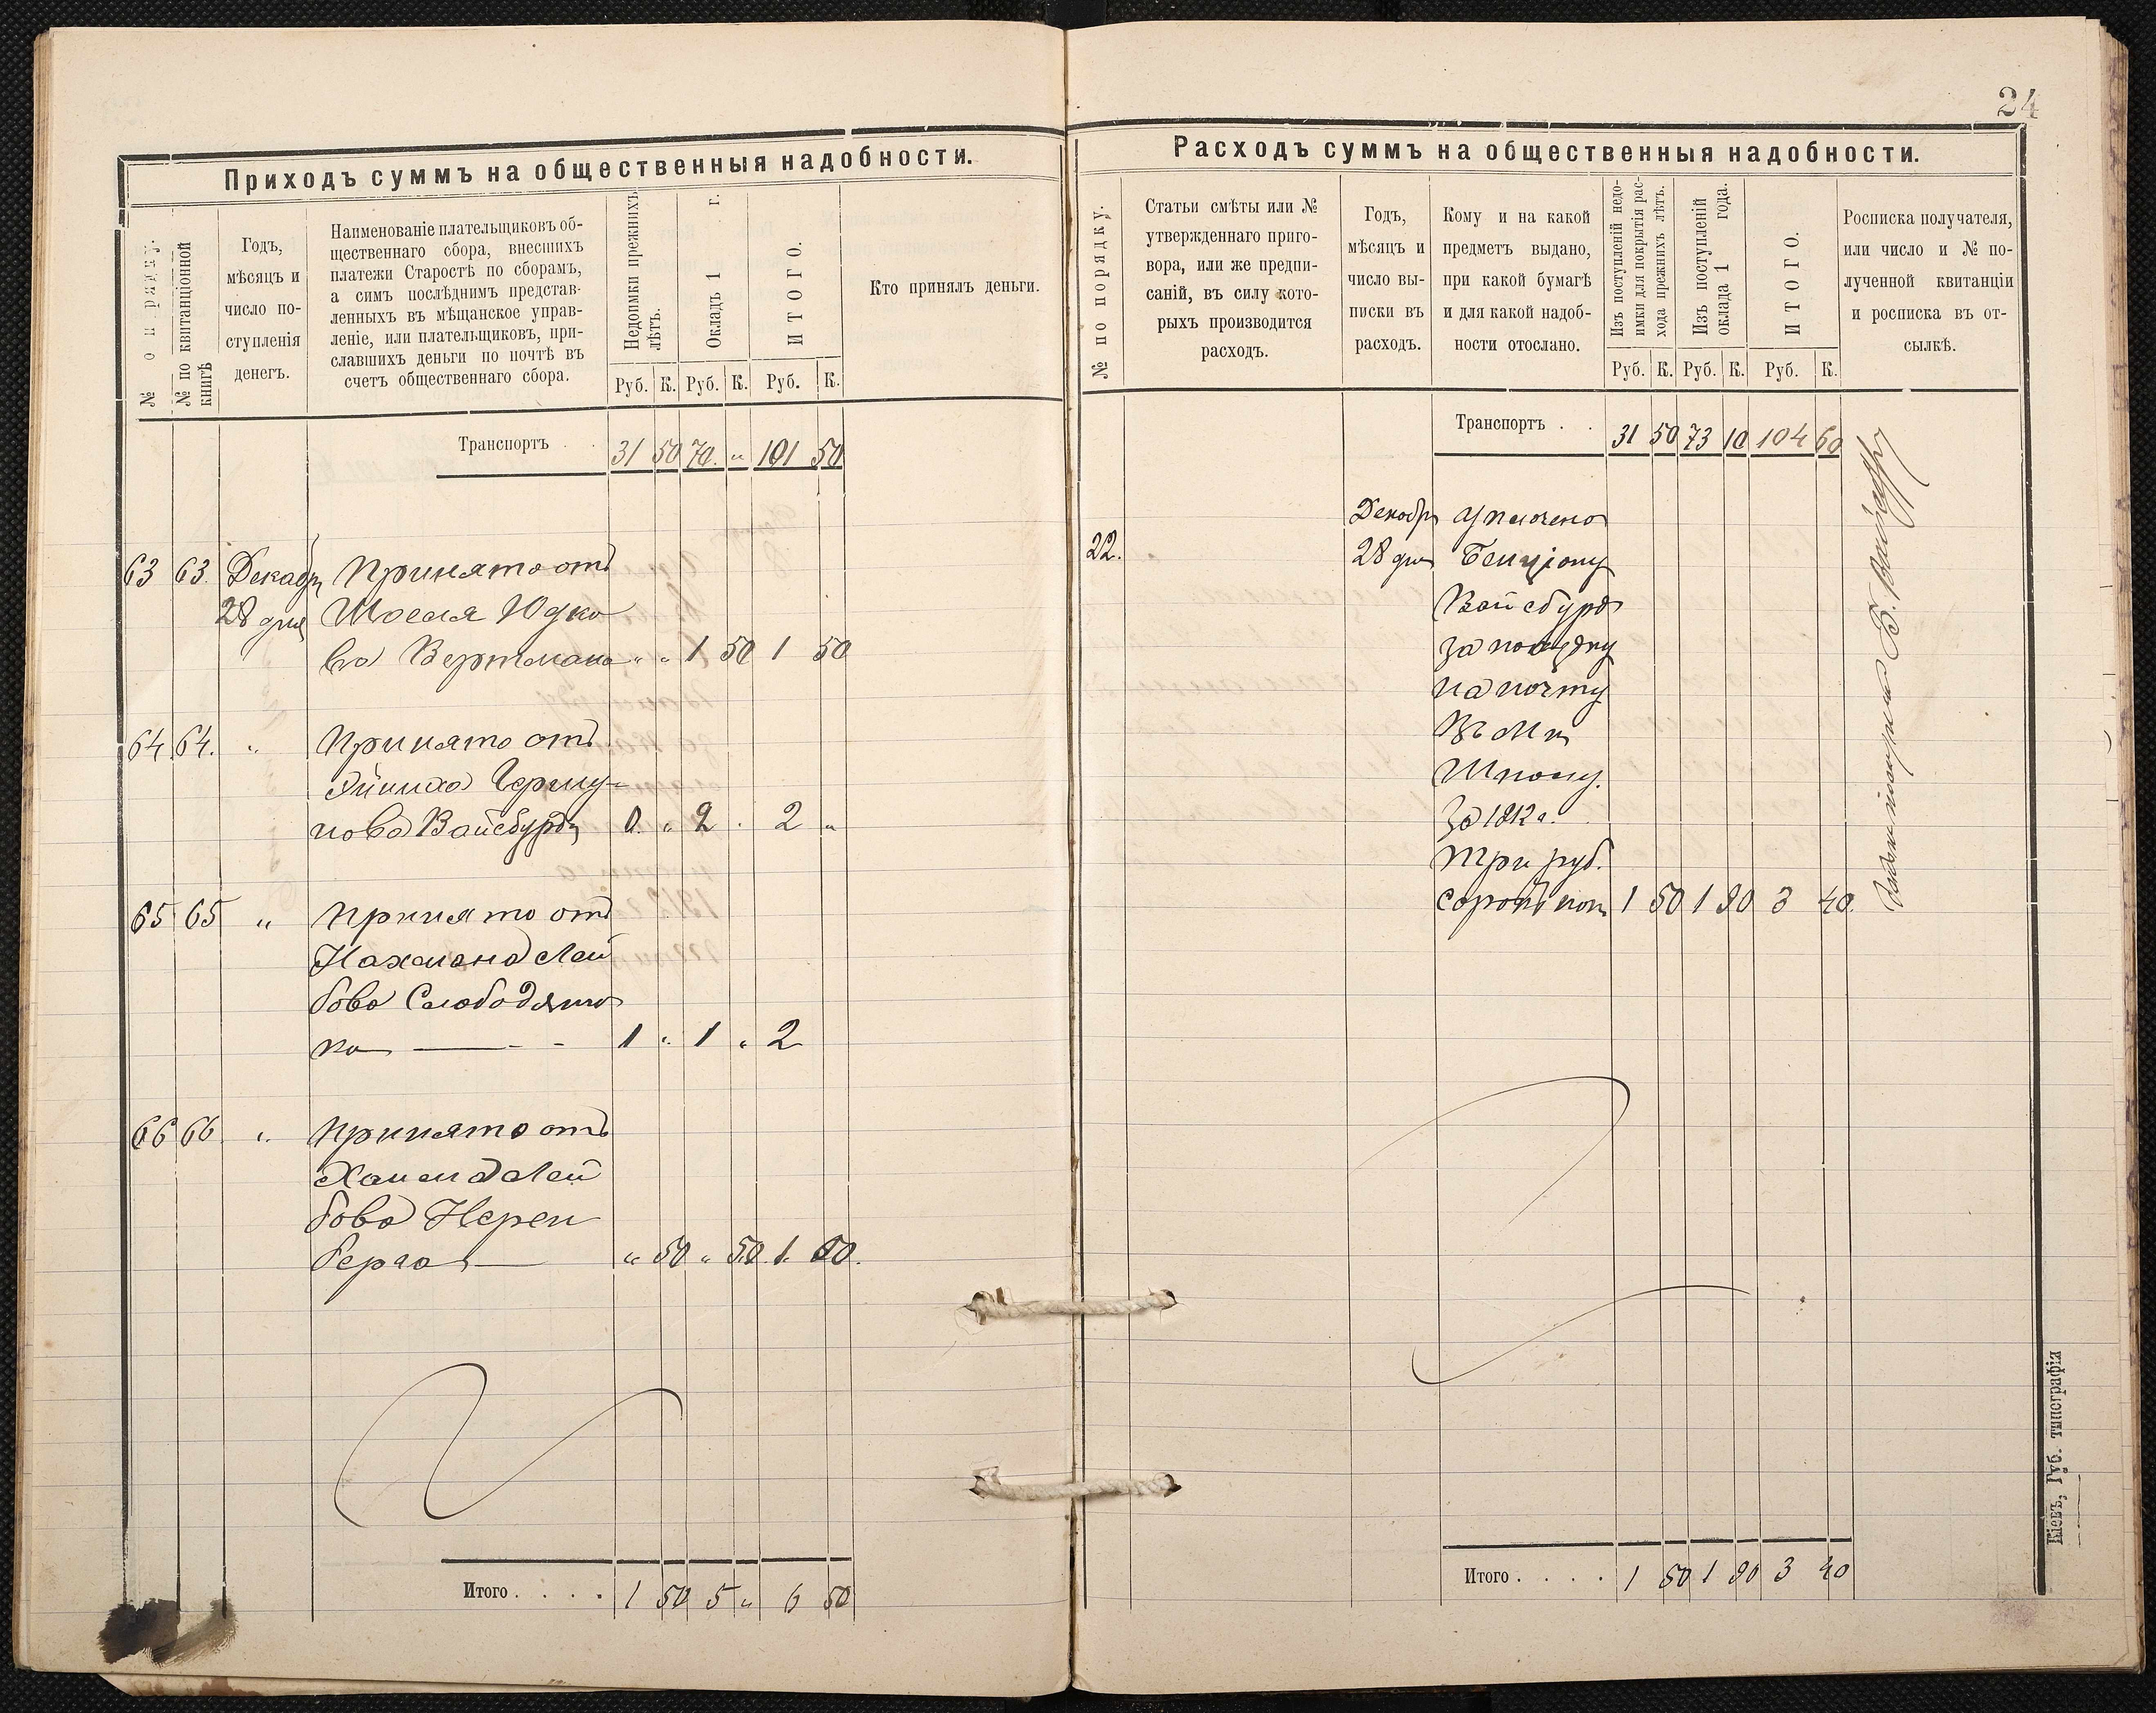 24
Приходъ суммъ на общественныя надобности.
№ по
№ по квитанціонной книгѣ
Годъ,
мѣсяцъ и
число по-
ступленія
денегъ.
Наименованіе плательщиковъ об-
щественнаго сбора, внесшихъ
платежи Старостѣ по сборамъ,
а симъ послѣднимъ представ-
ленныхъ въ мѣщанское управ-
леніе, или плательщиковъ, при-
славшихъ деньги по почтѣ въ
счетъ общественнаго сбора.
Недоимки прежнихъ
лѣтъ.
Окладъ 1 г.
ИТОГО.
Кто принялъ деньги.
Руб. К. Руб. К. Руб. К.
Транспортъ . . 31 50 70. „ 101 50
63 63. Декабря Принято отъ
28 дня Шоеля Юдко
ва Вертмана „ „ 1 50 1 50
64. 64. „ Принято отъ
нова Вайсбурда 0. „ 2 . 2 „
65 65 „ Принято отъ
Нахмана Лей
бова Слободяню
ка — - - 1 „ 1 „ 2
66 66 „ Принято отъ
Лей
бова Нерен
берга — „ 50 „ 50. 1. 00.
Итого . . . . 1 50 5 „ 6 50
Расходъ суммъ на общественныя надобности.
№ по порядку.
Статьи смѣты или №
утвержденнаго приго-
вора, или же предпи-
саній, въ силу кото-
рыхъ производится
расходъ.
Годъ,
мѣсяцъ и
число вы-
писки въ
расходъ.
Кому и на какой
предметъ выдано,
при какой бумагѣ
и для какой надоб-
ности отослано.
Изъ поступленій недо-
имки для покрытія рас-
хода прежнихъ лѣтъ.
Изъ поступленій
оклада 1 года.
ИТОГО.
Росписка получателя,
или число и № по-
лученной квитанціи
и росписка въ от-
сылкѣ.
Руб. К. Руб. К. Руб. К.
Транспортъ . . 31 50 73 10 104 60
Декабря Уплочено
22. 28 дня Бенціону
Вайсбурд
за поѣздку
на почту
въ м
Шполу.
за 1912 г.
Три руб.
сорокъ коп 1 50 1 90 3 40.
Итого . . . . 1 50 1 90 3 40
Кіевъ, Губ. типографія